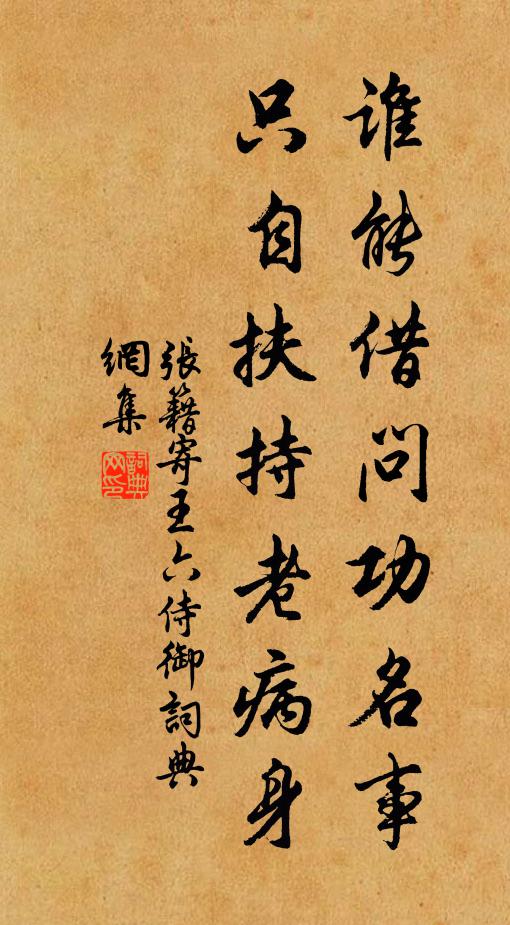 谁能借问功名事
只自扶持老病身
張籍寄王六侍御詞典
網集
詞典
网印